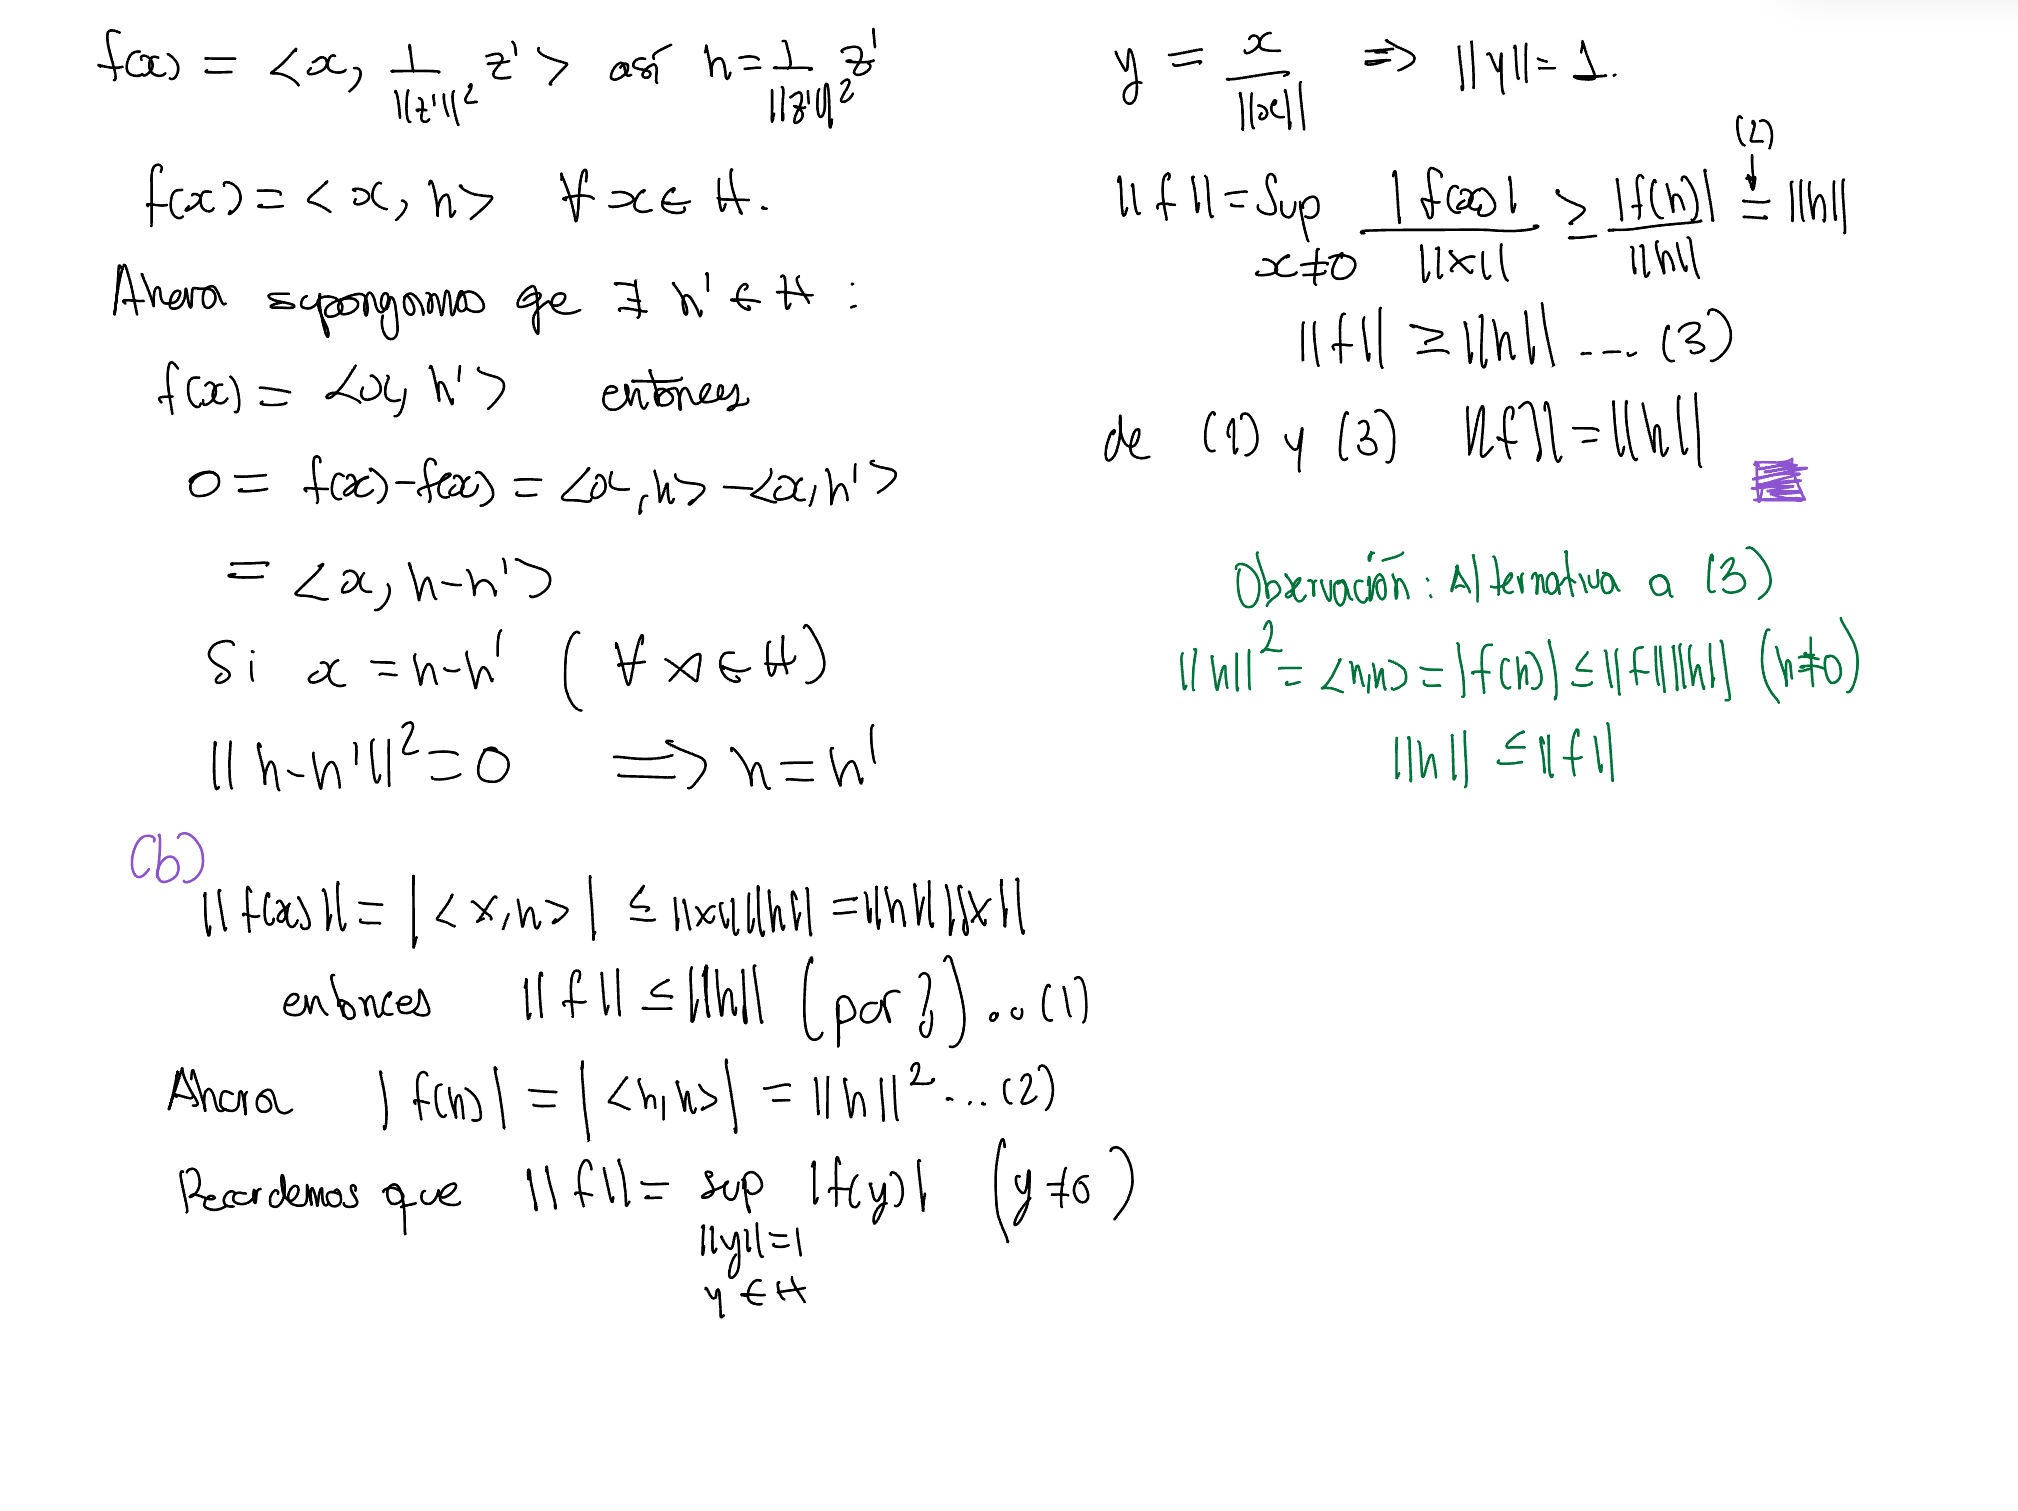 f(x) = <x, 1/||z'||² z'> así h = 1/||z'||² z'
f(x) = <x, h> ∀ x ∈ H.
Ahora supongamos qe ∃ h' ∈ H :
f(x) = <x, h'> entonces
0 = f(x) - f(x) = <x, h> - <x, h'>
= <x, h-h'>
Si x = h-h' (∀ x ∈ H)
||h-h'||² = 0 ⟹ h = h'
(b)
||f(x)|| = |<x, h>| ≤ ||x|| ||h|| = ||h|| ||x||
entonces ||f|| ≤ ||h|| (por ?) ... (1)
Ahora |f(h)| = |<h, h>| = ||h||² ... (2)
Recordemos que ||f|| = sup |f(y)| (y ≠ 0)
||y|| = 1
y ∈ H
y = x/||x|| ⟹ ||y|| = 1.
(2)
↓
||f|| = Sup |f(x)|/||x|| ≥ |f(h)|/||h|| = ||h||
x ≠ 0
||f|| ≥ ||h|| ... (3)
de (1) y (3) ||f|| = ||h||
Observación : Alternativa a (3)
||h||² = <h,h> = |f(h)| ≤ ||f|| ||h|| (h ≠ 0)
||h|| ≤ ||f||